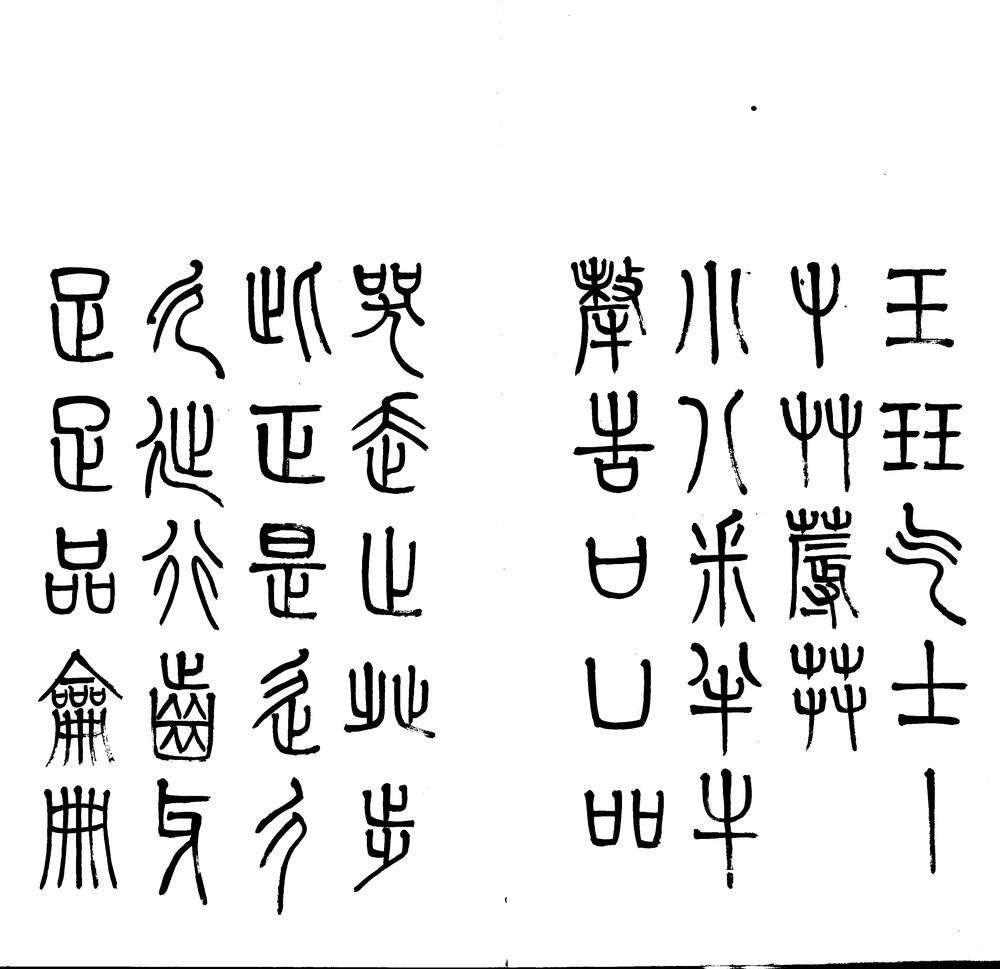 玉玨气士丨
屮艸蓐茻
小八釆半牛
犛告口凵吅
哭走止癶步
此正是辵彳
廴㢟行齒牙
足疋品龠冊